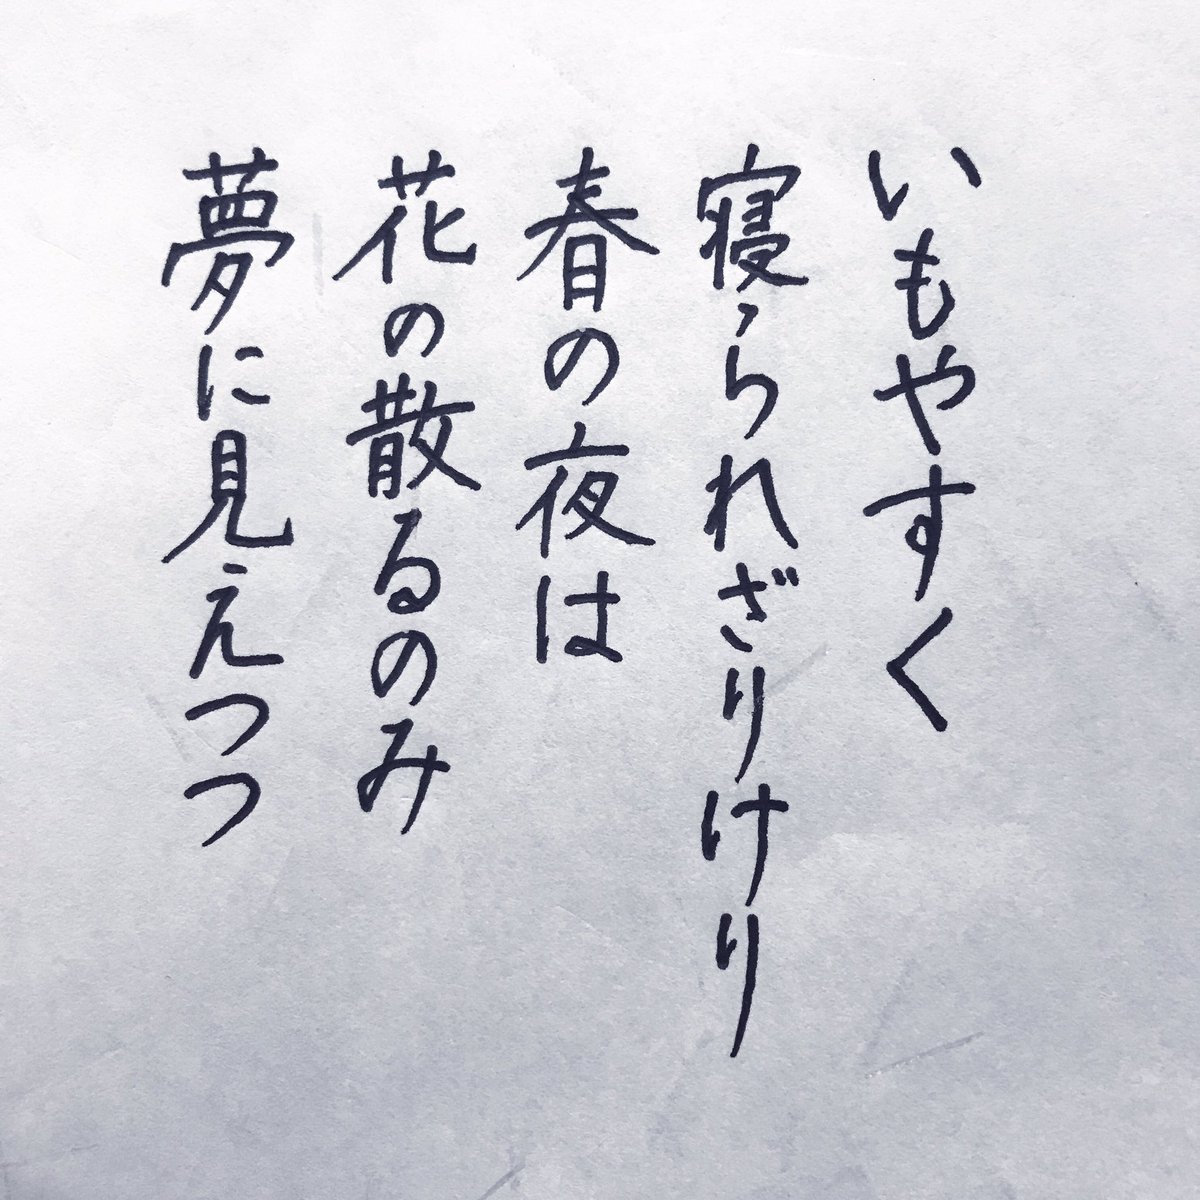 いもやすく
寝られざりけり
春の夜は
花の散るのみ
夢に見えつつ